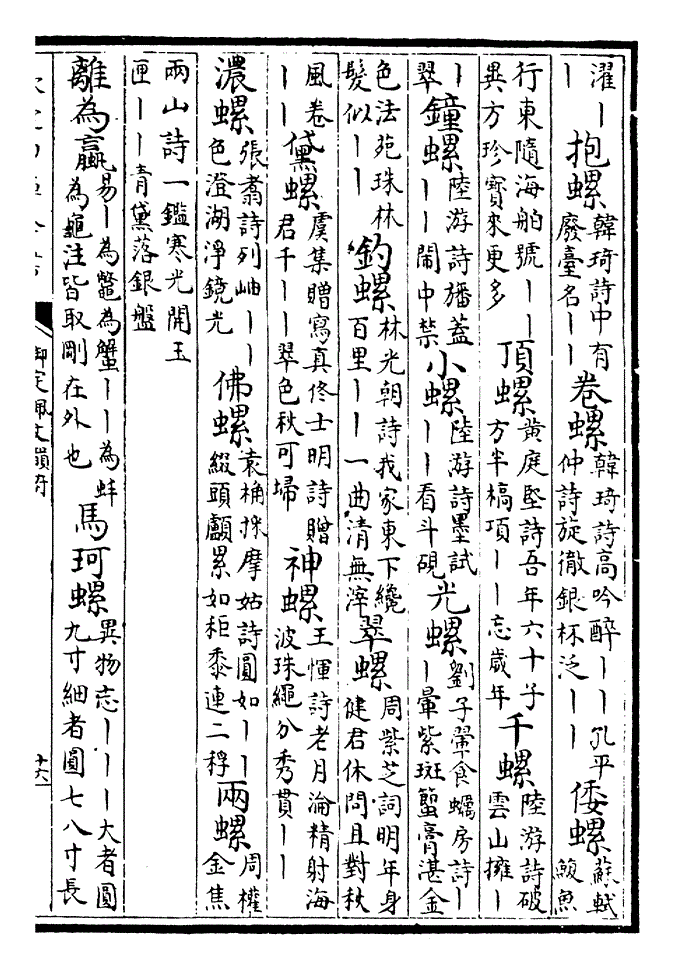 濯｜｜抱螺韓琦詩中有廢臺名｜｜卷螺韓琦詩高吟醉｜｜孔平仲詩旋徹銀杯泛｜｜倭螺蘇軾鰒魚
行東隨海舶號｜｜異方珍寶來更多頂螺黄庭堅詩吾年六十子方半槁項｜｜忘歲年千螺陸游詩破雲山擁｜
｜翠鐘螺陸游詩旛蓋｜｜鬧中禁小螺陸游詩墨試｜｜看斗硯光螺劉子翬食蠣房詩｜｜暈紫斑蠒膏湛金
色法苑珠林髮似｜｜釣螺林光朝詩我家東下纔百里｜｜一曲清無滓翠螺周紫芝詞明年身健君休問且對秋
風卷｜｜黛螺虞集贈寫真佟士明詩贈君千｜｜翠色秋可埽神螺王惲詩老月淪精射海波珠繩分秀貫｜｜
濃螺張翥詩列岫｜｜色澄湖淨鏡光佛螺袁桷採摩姑詩圓如｜｜綴頭顱累如秬黍連二稃兩螺周權金焦
兩山詩一鑑寒光開玉匣｜｜青黛落銀盤
離為蠃易｜為鼈為蟹｜｜為蚌為龜注皆取剛在外也馬珂螺異物志｜｜｜大者圓九寸細者圓七八寸長
御定佩文韻府
十六